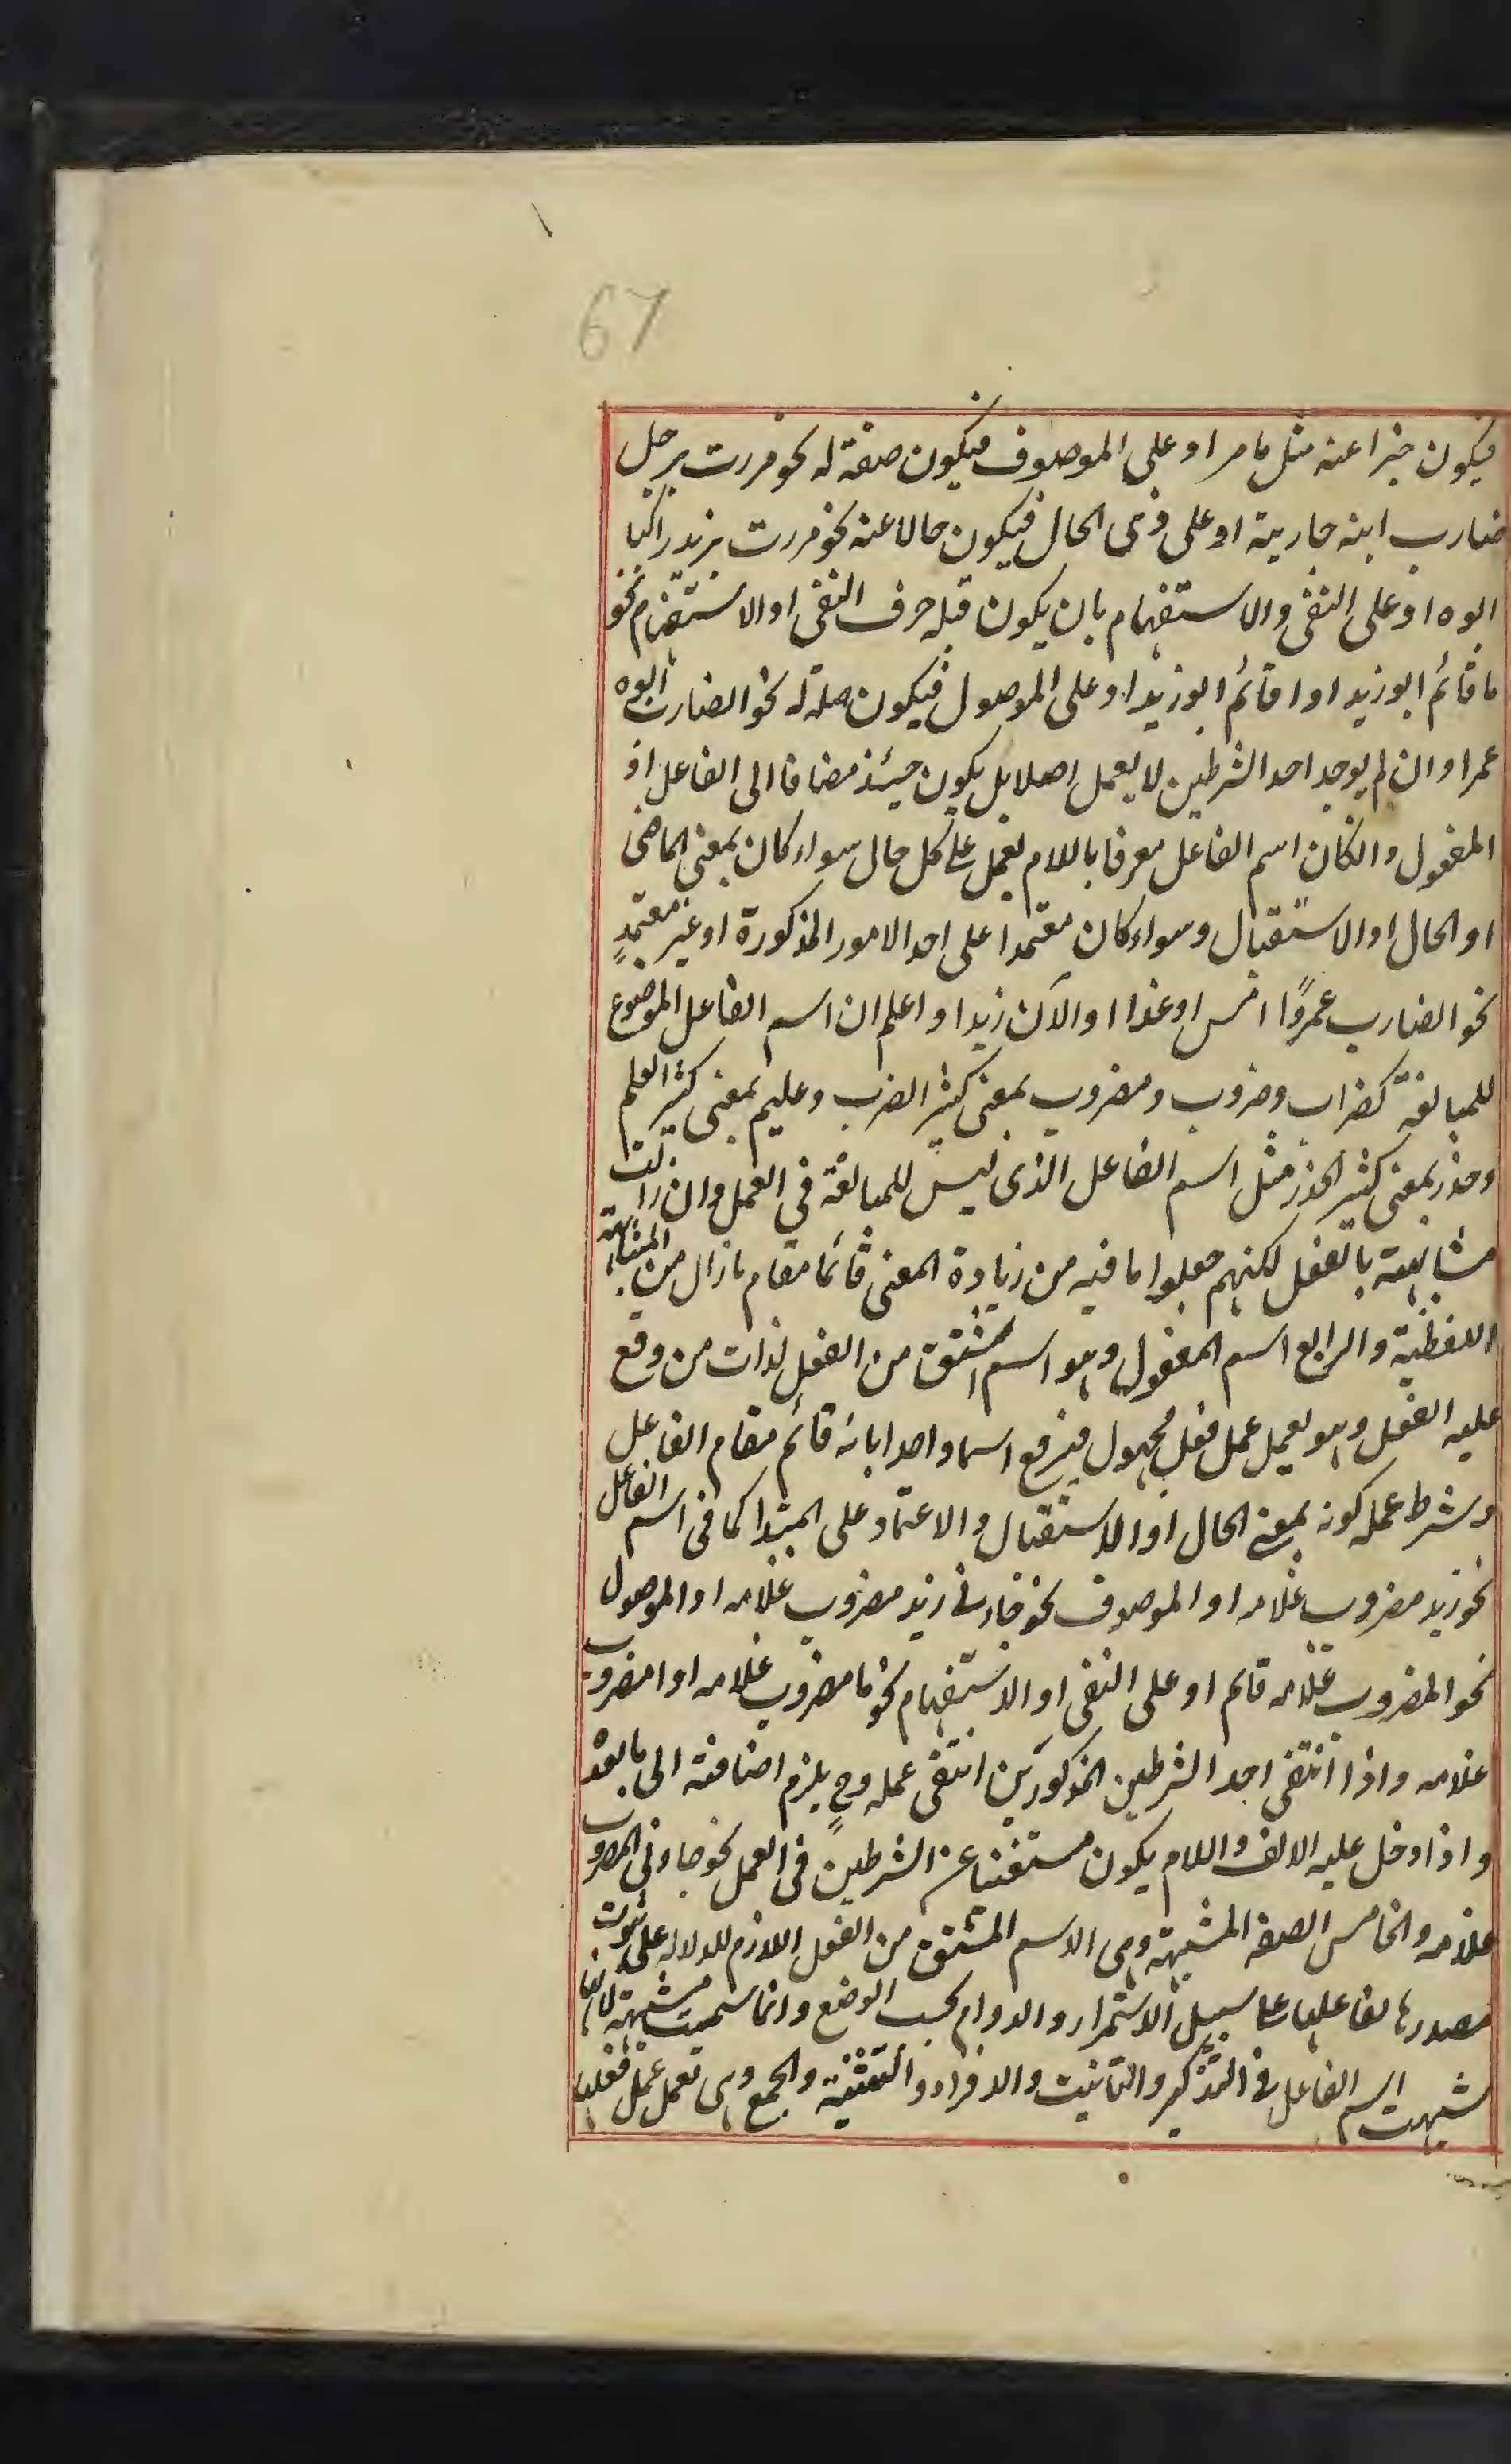 67
فيكون خبرا عنه مثل ما مر او على الموصوف فيكون صفة له نحو مررت برجل
ضارب ابنه جارية او على ذى الحال فيكون حالا عنه نحو مررت بزيد راكبا
ابوه او على النفى والاستفهام بان يكون قبله حرف النفى او الاستفهام نحو
ما قائم ابو زيد او اقائم ابو زيد او على الموصول فيكون صلة له نحو الضارب ابوه
عمرا وان لم يوجد احد الشرطين لا يعمل اصلا بل يكون حينئذ مضافا الى الفاعل او
المفعول وانكان اسم الفاعل معرفا باللام يعمل على كل حال سواء كان بمعنى الماضى
او الحال او الاستقبال وسواء كان معتمدا على احد الامور المذكورة او غير معتمدٍ
نحو الضارب عمروًا امس او غدا او الآن زيدا واعلم ان اسم الفاعل الموضوع
للمبالغة كضراب وضروب ومضروب بمعنى كثير الضرب وعليم بمعنى كثير العلم
وحذر بمعنى كثير الحذر مثل اسم الفاعل الذى ليس للمبالغة في العمل وان زالت
مشابهته بالفعل لكنهم جعلوا ما فيه من زيادة المعنى قائما مقام ما زال من المشابهة
اللفظية والرابع اسم المفعول وهو اسم اشتق من الفعل لذات من وقع
عليه الفعل وهو يعمل عمل فعل مجهول فيرفع اسما واحدا بانه قائم مقام الفاعل
وشرط عمله كونه بمعنى الحال او الاستقبال والاعتماد على المبتدا كما فى اسم الفاعل
نحو زيد مضروب غلامه او الموصوف نحو جاءنى زيد مضروب غلامه او الموصول
نحو المضروب غلامه قائم او على النفى او الاستفهام نحو ما مضروب غلامه او امضروب
غلامه واذا انتفى احد الشرطين المذكورين انتفى عمله وح يلزم اضافته الى ما بعده
واذا دخل عليه الالف واللام يكون مستغنيا عن الشرطين فى العمل نحو جاءنى المضروب
غلامه والخامس الصفة المشبهة وهى الاسم المشتق من الفعل اللازم للدلالة على ثبوت
مصدرها لفاعلها على سبيل الاستمرار والدوام بحسب الوضع وانما سميت مشبهة لانها
شبهت اسم الفاعل فى التذكير والتانيث والافراد والتثنية والجمع وهى تعمل عمل فعلها